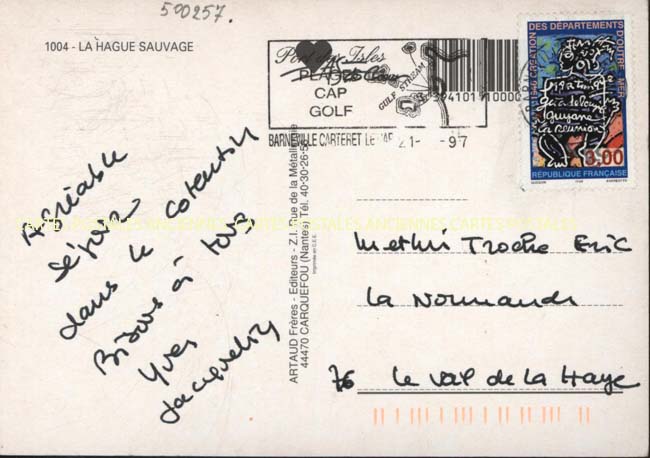 500257.
1004 - LA HAGUE SAUVAGE
Port des Isles
PLAGES
CAP
GOLF
GULF STREAM
BARNEVILLE CARTERET
21- -97
CRÉATION DES DÉPARTEMENTS D'OUTRE-MER
martinique
guadeloupe
guyane
la réunion
3,00
RÉPUBLIQUE FRANÇAISE
Agréable
séjour
dans le cotentin
Bisous à tous
Yves
Jacqueline
CARTES POSTALES ANCIENNES CARTES POSTALES ANCIENNES CARTES POSTALES
ARTAUD Frères - Editeurs - Z.I. Rue de la Métallurgie
44470 CARQUEFOU (Nantes) Tél. 40-30-26-5
Imprimé en C.E.E.
Mr et Mme Troche Eric
La Normandie
76 Le Val de la Haye